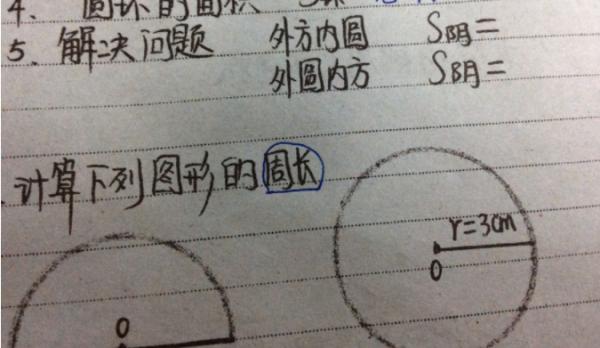 4、圆环的面积
5、解决问题 外方内圆 S阴=
外圆内方 S阴=
计算下列图形的周长
r=3cm
O
O